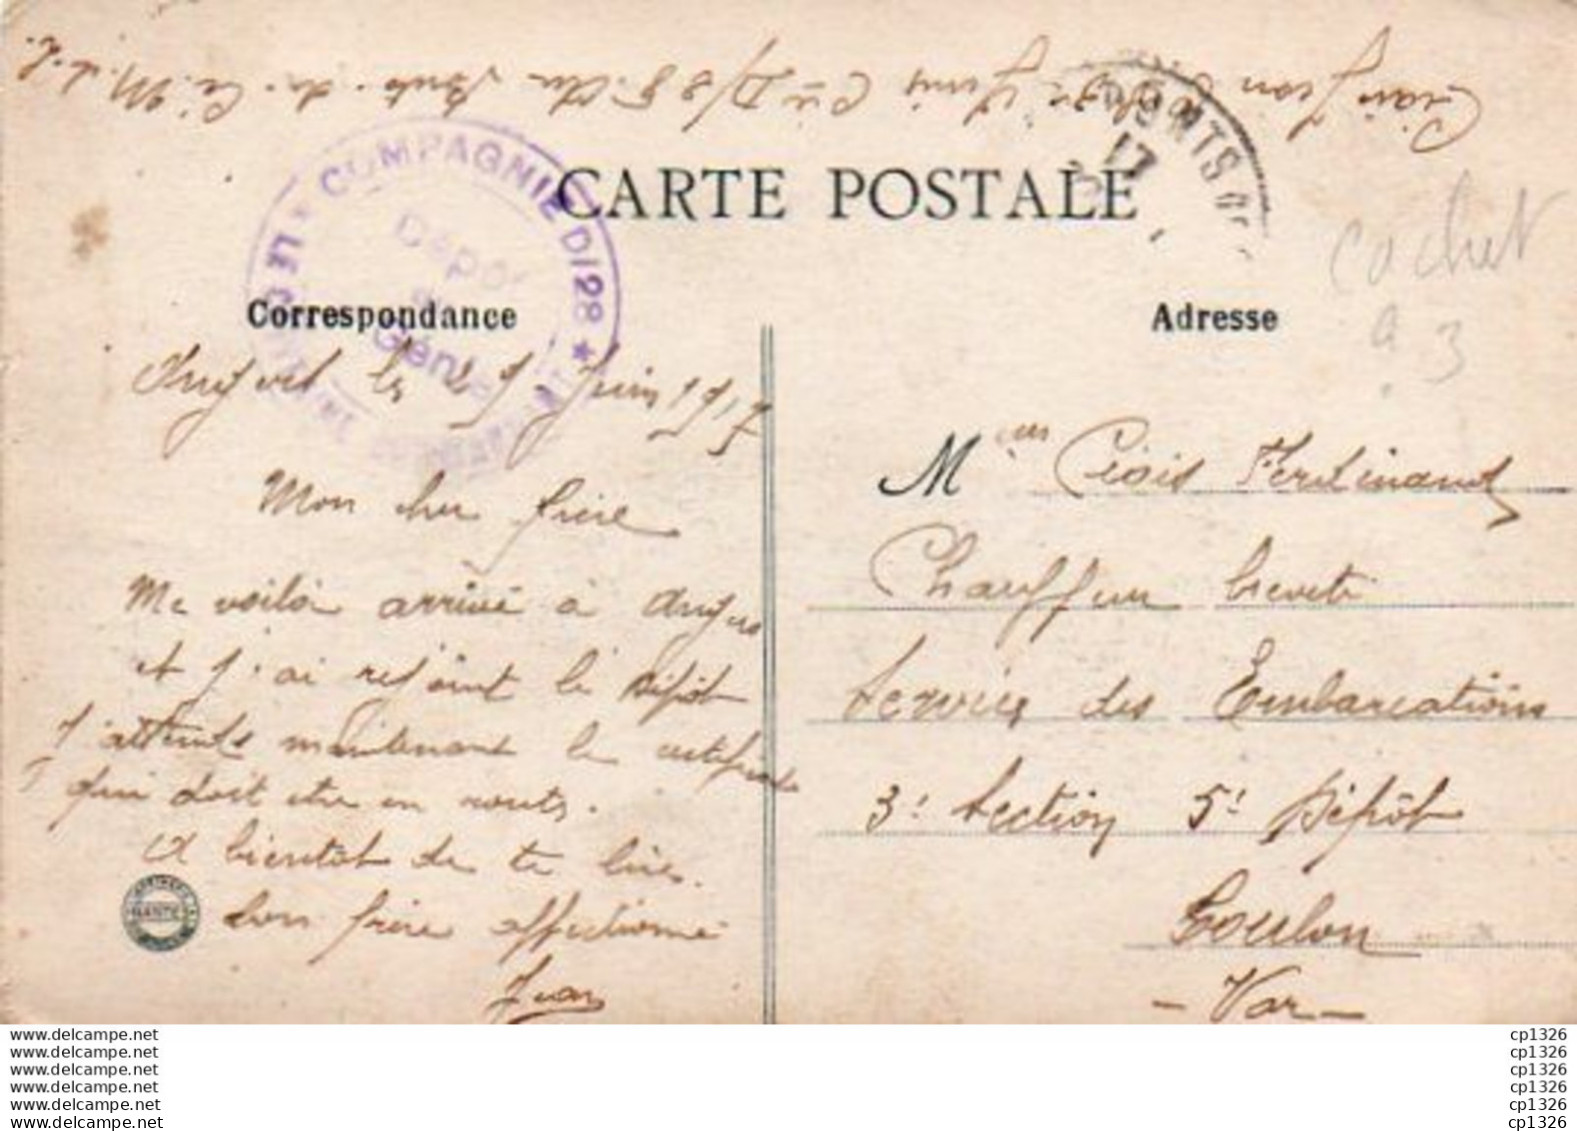 Jean
Cie D/28
CARTE POSTALE
COMPAGNIE D/28 ★
Dépôt
Génie
PONTS DE
17
cachet
a 3
Correspondance
Adresse
le 25 Juin 1917
Mon cher frère
Me voilà arrivé à Angers
et j'ai rejoint le Dépôt
J'attends maintenant le certificat
qui doit être en route.
A bientôt de te lire.
Ton frère affectionné
Jean
NANTES
Mr Ciais Ferdinand
Chauffeur breveté
Service des Embarcations
3e Section 5e Dépôt
Toulon
- Var -
www.delcampe.net
www.delcampe.net
www.delcampe.net
www.delcampe.net
www.delcampe.net
www.delcampe.net
cp1326
cp1326
cp1326
cp1326
cp1326
cp1326